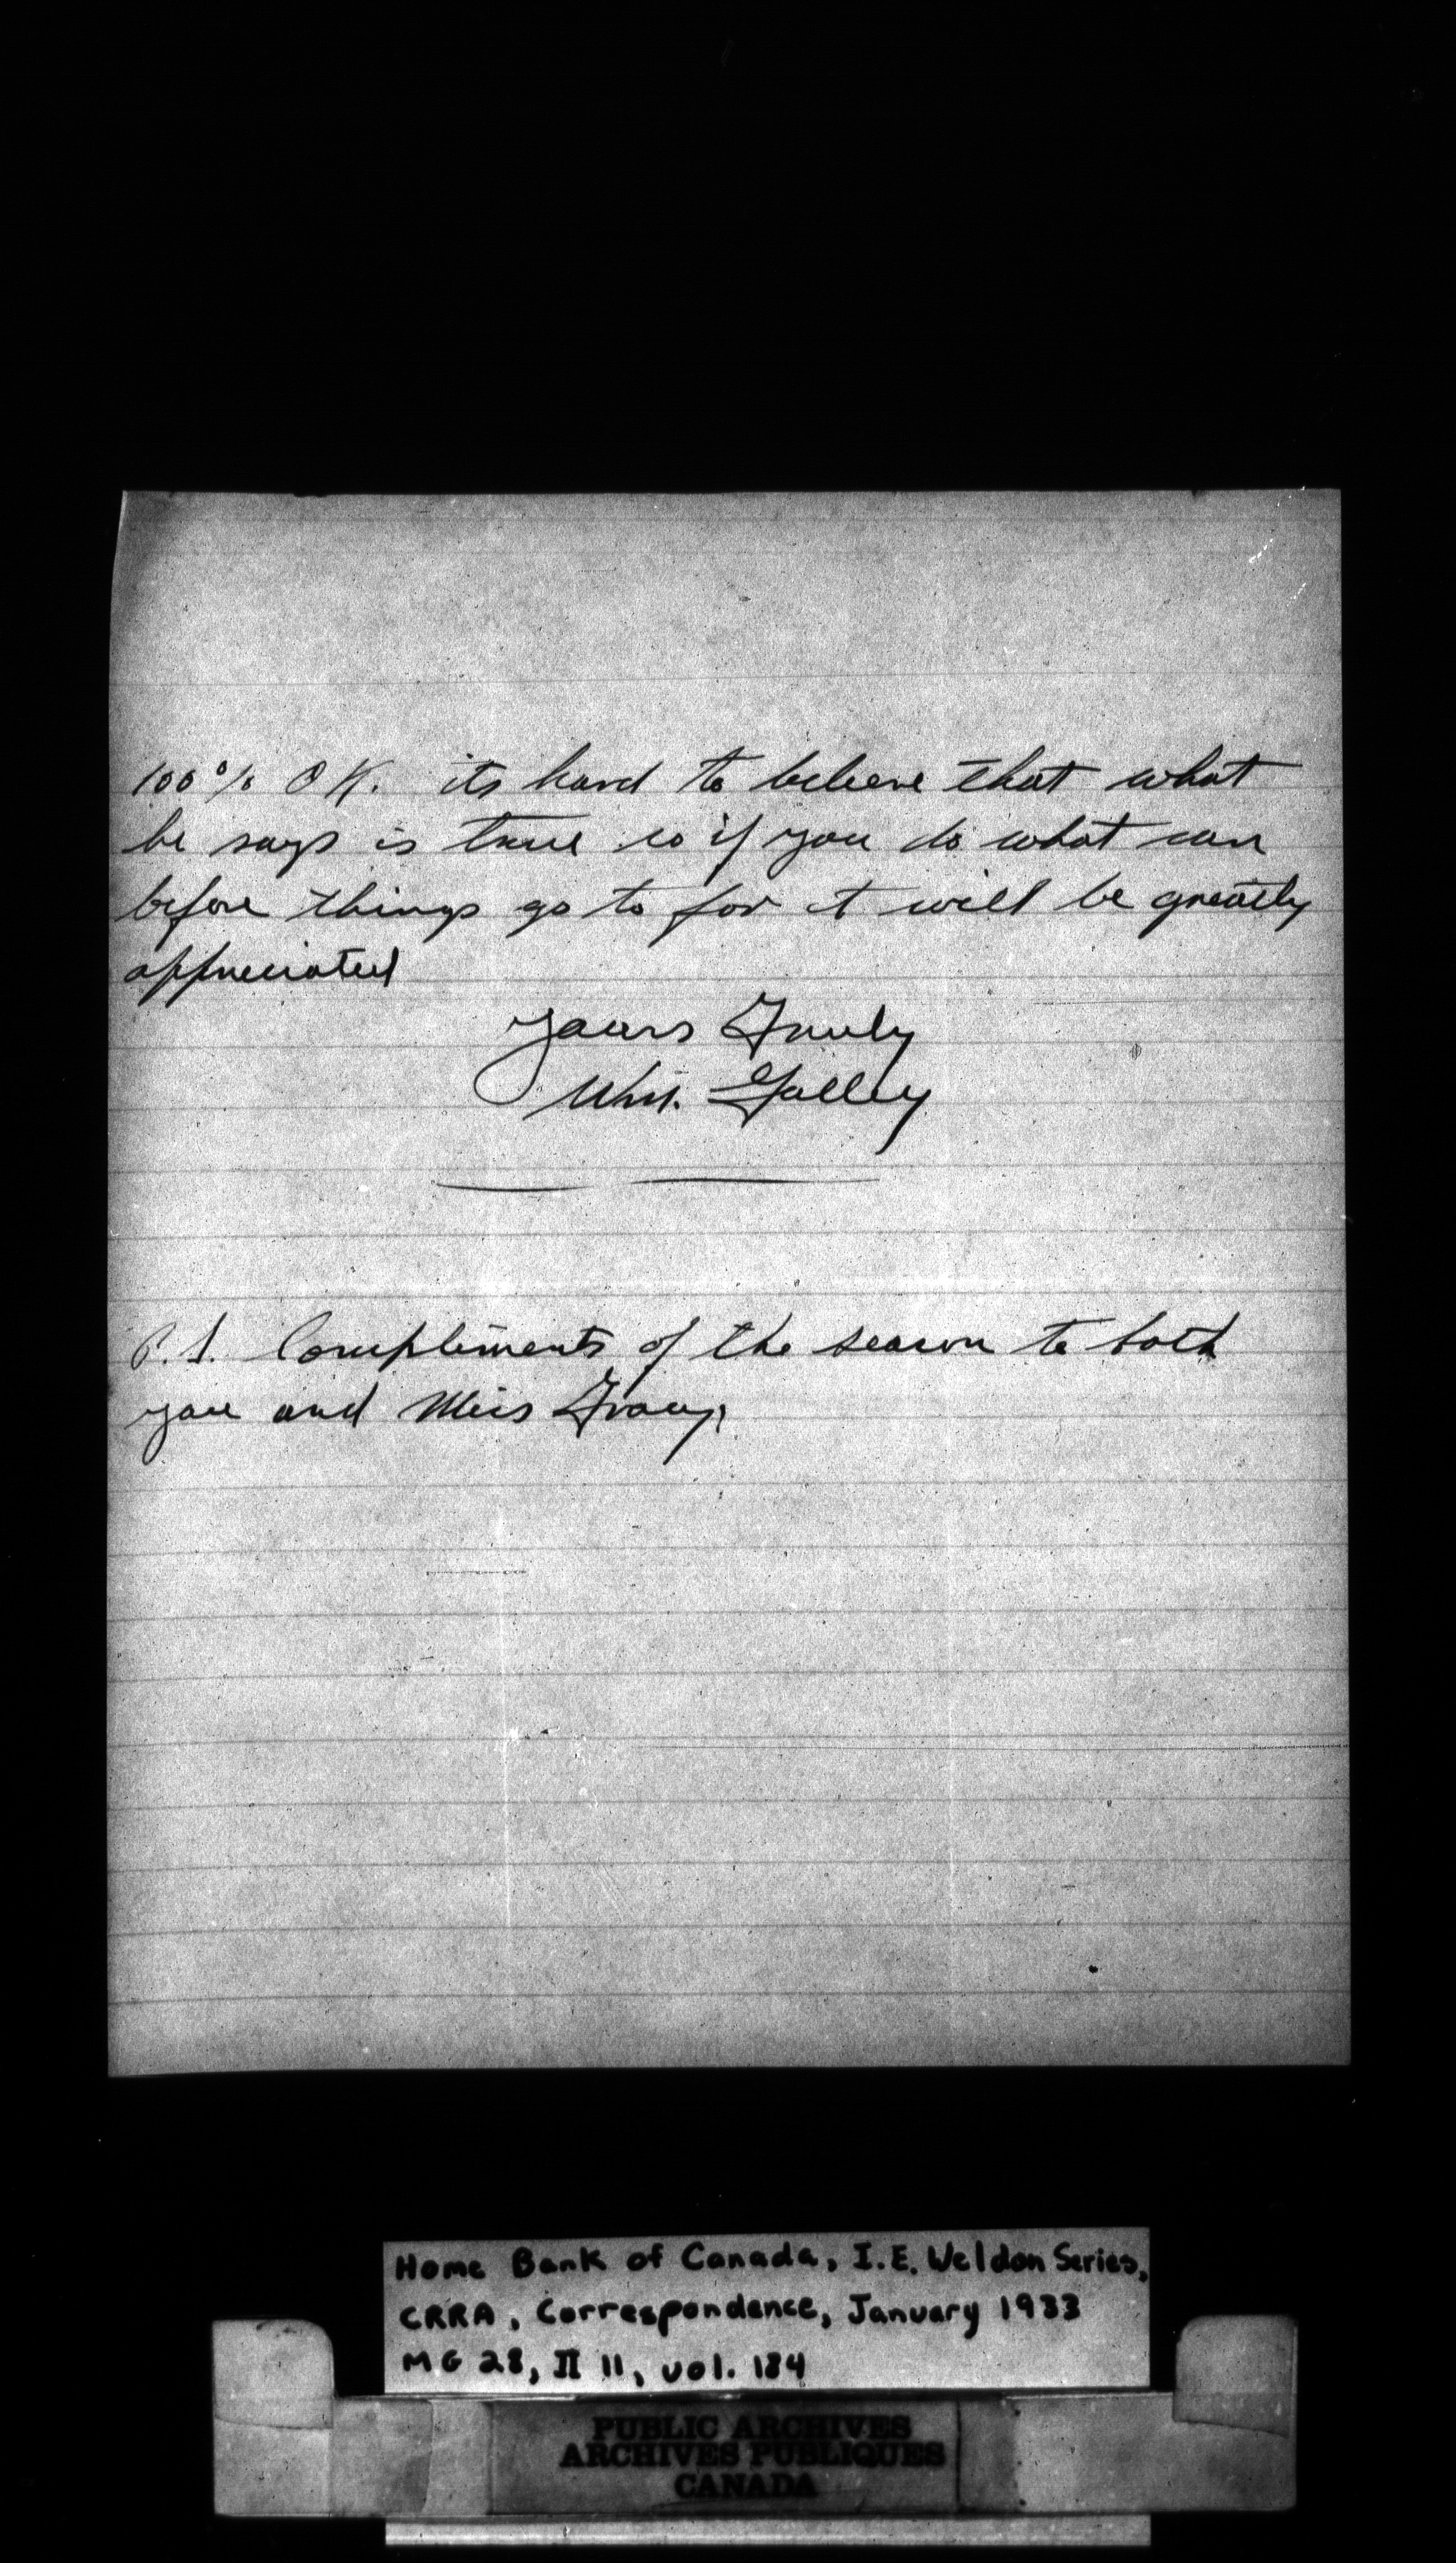 100% OK. its hard to believe that what
he says is true so if you do what can
before things go to far it will be greatly
appreciated
Yours Truly
Wm. Galley
P.S. Compliments of the season to both
you and Miss Tracy.
Home Bank of Canada, I.E. Weldon Series,
CRRA, Correspondence, January 1933
MG 28, II 11, vol. 184
PUBLIC ARCHIVES
ARCHIVES PUBLIQUES
CANADA